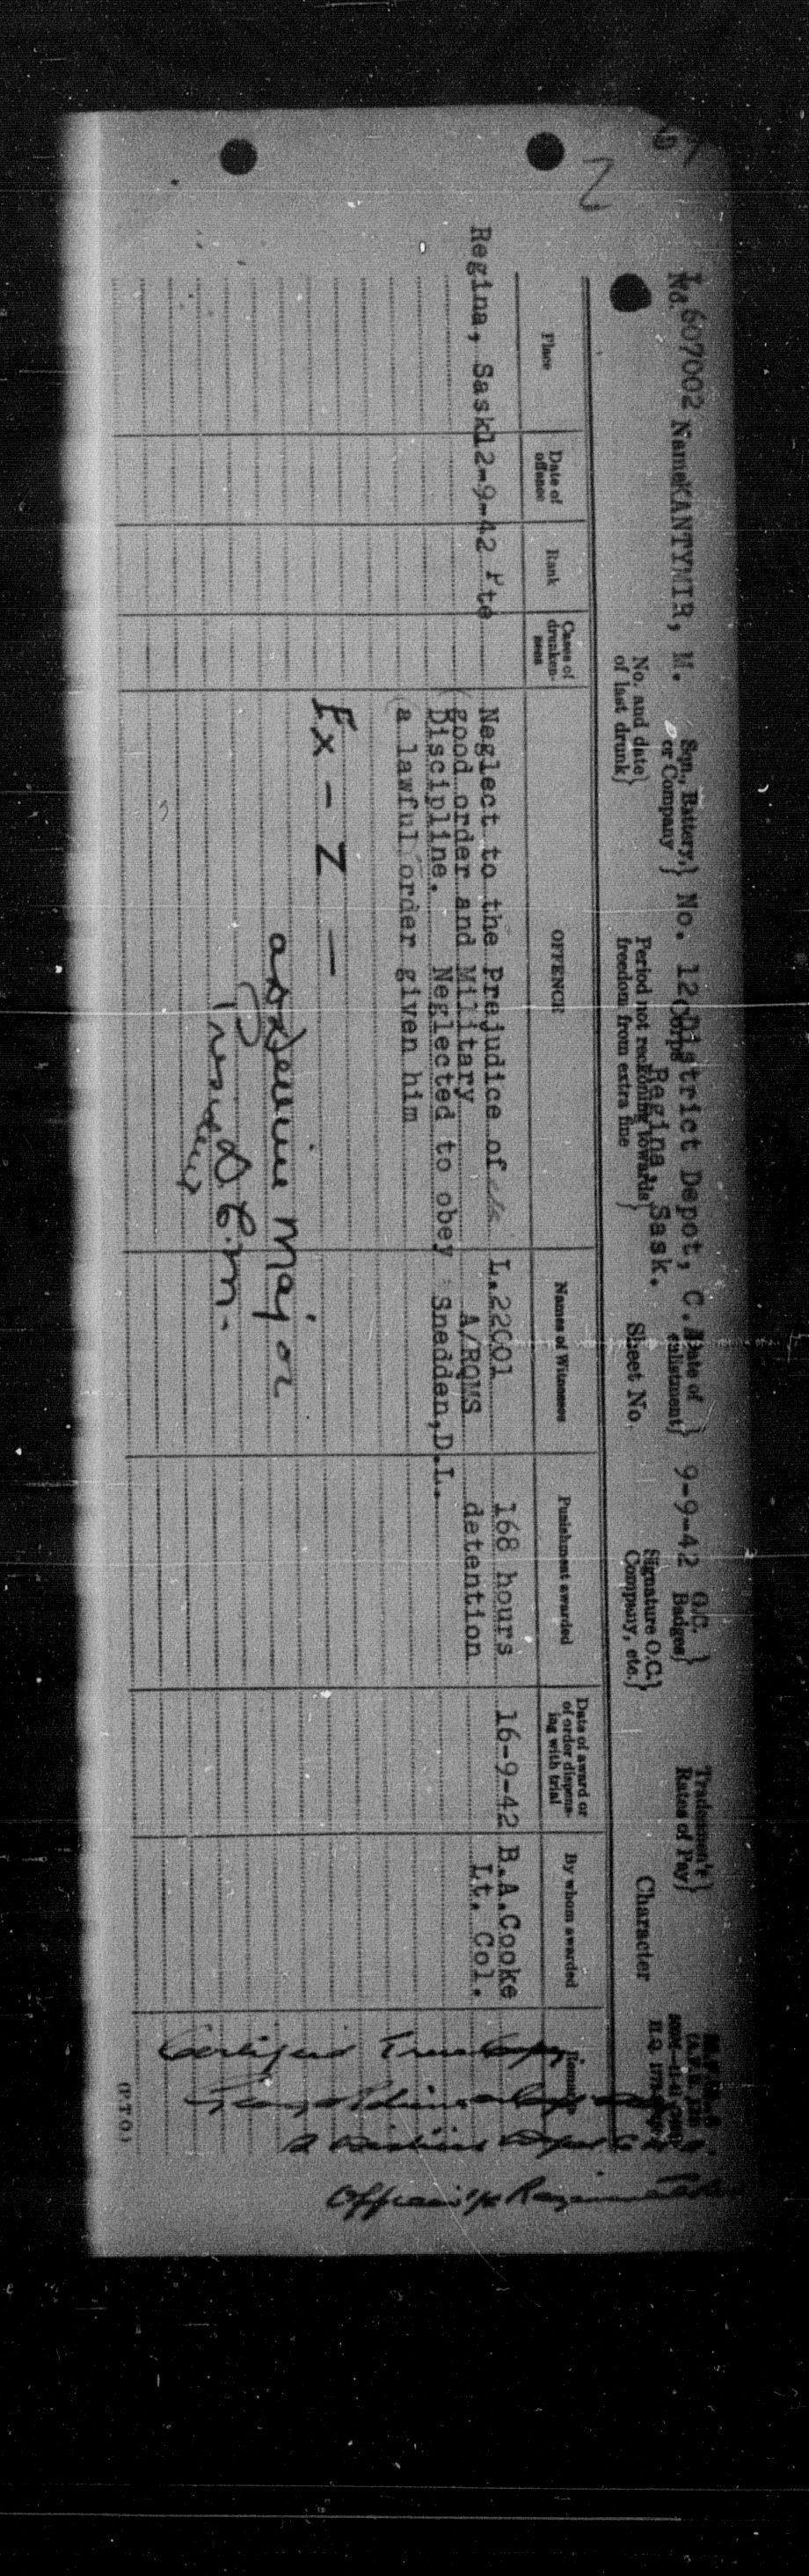 2
No. L607002 Name KANTYMIR, M. Sqn., Battery, or Company } No. 12 District Depot, C.A. Date of enlistment } 9-9-42 G.C. Badges } Tradesmen's Rates of Pay }
Corps Regina, Sask.
No. and date of last drunk } Period not reckoning towards freedom from extra fine } Sheet No. Signature O.C. Company, etc. } Character
Place Date of offence Rank Cases of drunken-ness OFFENCE Names of Witnesses Punishment awarded Date of award or of order dispens-ing with trial By whom awarded Remarks
Regina, Sask 12-9-42 Pte Neglect to the Prejudice of L.22001 168 hours 16-9-42 B.A.Cooke
(good order and Military A/RQMS detention Lt. Col.
Discipline. Neglected to obey Snedden, D.L.
(a lawful order given him
Ex - Z -
Major
President C.M.
Certified True Copy
Officer i/c
(P.T.O.)